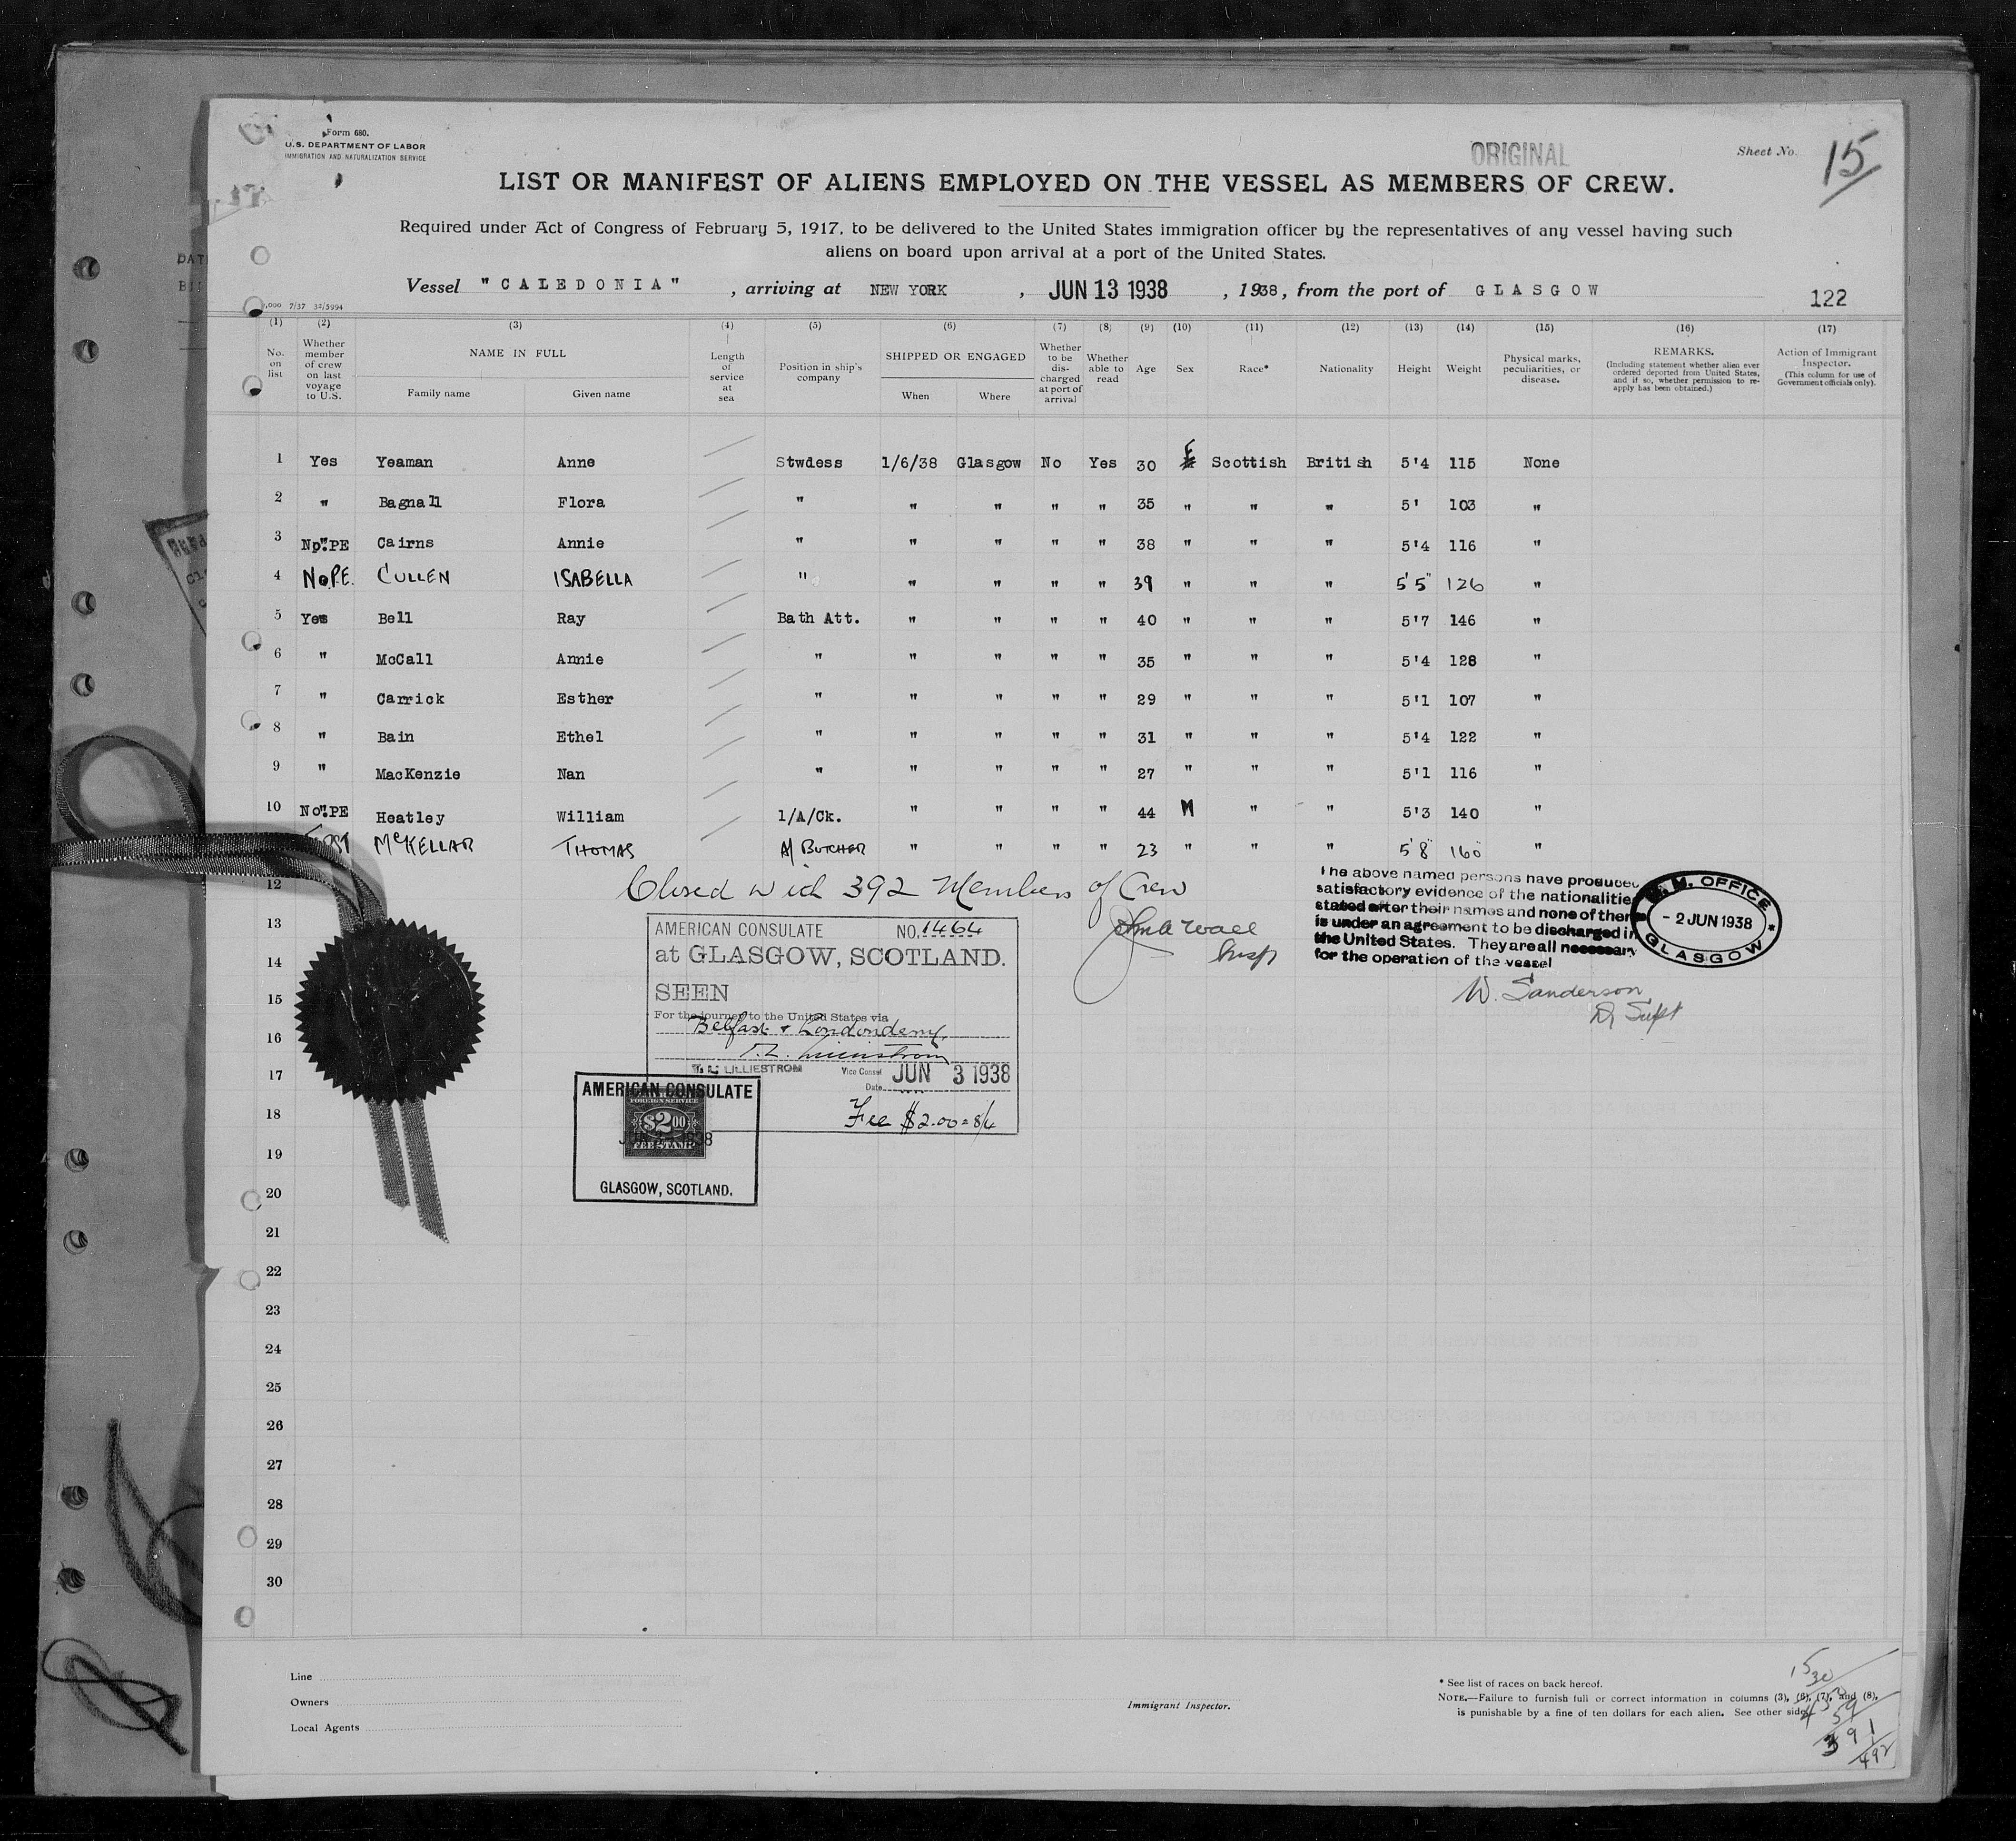 Form 680.
U.S. DEPARTMENT OF LABOR
IMMIGRATION AND NATURALIZATION SERVICE
ORIGINAL
Sheet No. 15
LIST OR MANIFEST OF ALIENS EMPLOYED ON THE VESSEL AS MEMBERS OF CREW.
Required under Act of Congress of February 5, 1917, to be delivered to the United States immigration officer by the representatives of any vessel having such
aliens on board upon arrival at a port of the United States.
Vessel "CALEDONIA" , arriving at NEW YORK , JUN 13 1938 , 1938, from the port of GLASGOW
122
(1) (2) (3) (4) (5) (6) (7) (8) (9) (10) (11) (12) (13) (14) (15) (16) (17)
No. on list
Whether member of crew on last voyage to U.S.
NAME IN FULL
Family name Given name
Length of service at sea
Position in ship's company
SHIPPED OR ENGAGED
When Where
Whether to be discharged at port of arrival
Whether able to read
Age
Sex
Race*
Nationality
Height
Weight
Physical marks, peculiarities, or disease.
REMARKS.
(Including statement whether alien ever ordered deported from United States, and if so, whether permission to re-apply has been obtained.)
Action of Immigrant Inspector.
(This column for use of Government officials only).
1 Yes Yeaman Anne Stwdess 1/6/38 Glasgow No Yes 30 F Scottish British 5'4 115 None
2 " Bagnall Flora " " " " " 35 " " " 5' 103 "
3 No".PE Cairns Annie " " " " " 38 " " " 5'4 116 "
4 No P.E. CULLEN ISABELLA " " " " " 39 " " " 5'5" 126 "
5 Yes Bell Ray Bath Att. " " " " 40 " " " 5'7 146 "
6 " McCall Annie " " " " " 35 " " " 5'4 128 "
7 " Carrick Esther " " " " " 29 " " " 5'1 107 "
8 " Bain Ethel " " " " " 31 " " " 5'4 122 "
9 " MacKenzie Nan " " " " " 27 " " " 5'1 116 "
10 No".PE Heatley William 1/A/Ck. " " " " 44 M " " 5'3 140 "
McKELLAR THOMAS A/ BUTCHER " " " " 23 " " " 5'8" 160 "
12 Closed with 392 Members of Crew
13
14
15
16
17
18
19
20
21
22
23
24
25
26
27
28
29
30
AMERICAN CONSULATE NO. 1464
at GLASGOW, SCOTLAND.
SEEN
For the journey to the United States via
Belfast & Londonderry
LILLIESTROM Vice Consul
Date JUN 3 1938
Fee $2.00 = 8/4
AMERICAN CONSULATE
FOREIGN SERVICE
$2.00
FEE STAMP
GLASGOW, SCOTLAND.
The above named persons have produced
satisfactory evidence of the nationalities
stated after their names and none of them
is under an agreement to be discharged in
the United States. They are all necessary
for the operation of the vessel
M.M. OFFICE
- 2 JUN 1938
GLASGOW
W. Sanderson
D/ Supt
Line
Owners
Local Agents
Immigrant Inspector.
* See list of races on back hereof.
NOTE.—Failure to furnish full or correct information in columns (3), (6), (7), and (8),
is punishable by a fine of ten dollars for each alien. See other side.
391